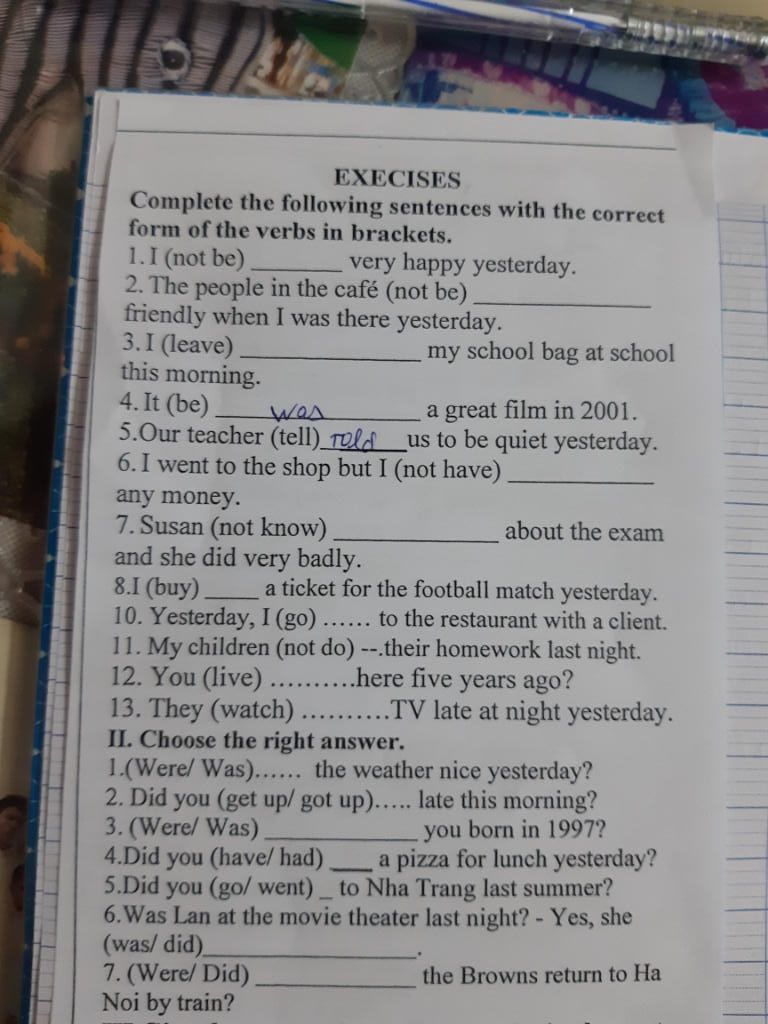 EXECISES
Complete the following sentences with the correct
form of the verbs in brackets.
1. I (not be) ________ very happy yesterday.
2. The people in the café (not be) ________________
friendly when I was there yesterday.
3. I (leave) ________________ my school bag at school
this morning.
4. It (be) ____was________ a great film in 2001.
5.Our teacher (tell) told___us to be quiet yesterday.
6. I went to the shop but I (not have) _____________
any money.
7. Susan (not know) _______________ about the exam
and she did very badly.
8.I (buy) _____ a ticket for the football match yesterday.
10. Yesterday, I (go) ...... to the restaurant with a client.
11. My children (not do) --.their homework last night.
12. You (live) ..........here five years ago?
13. They (watch) ..........TV late at night yesterday.
II. Choose the right answer.
1.(Were/ Was)...... the weather nice yesterday?
2. Did you (get up/ got up)..... late this morning?
3. (Were/ Was) ______________ you born in 1997?
4.Did you (have/ had) ____ a pizza for lunch yesterday?
5.Did you (go/ went) _ to Nha Trang last summer?
6.Was Lan at the movie theater last night? - Yes, she
(was/ did)____________________.
7. (Were/ Did) _______________ the Browns return to Ha
Noi by train?